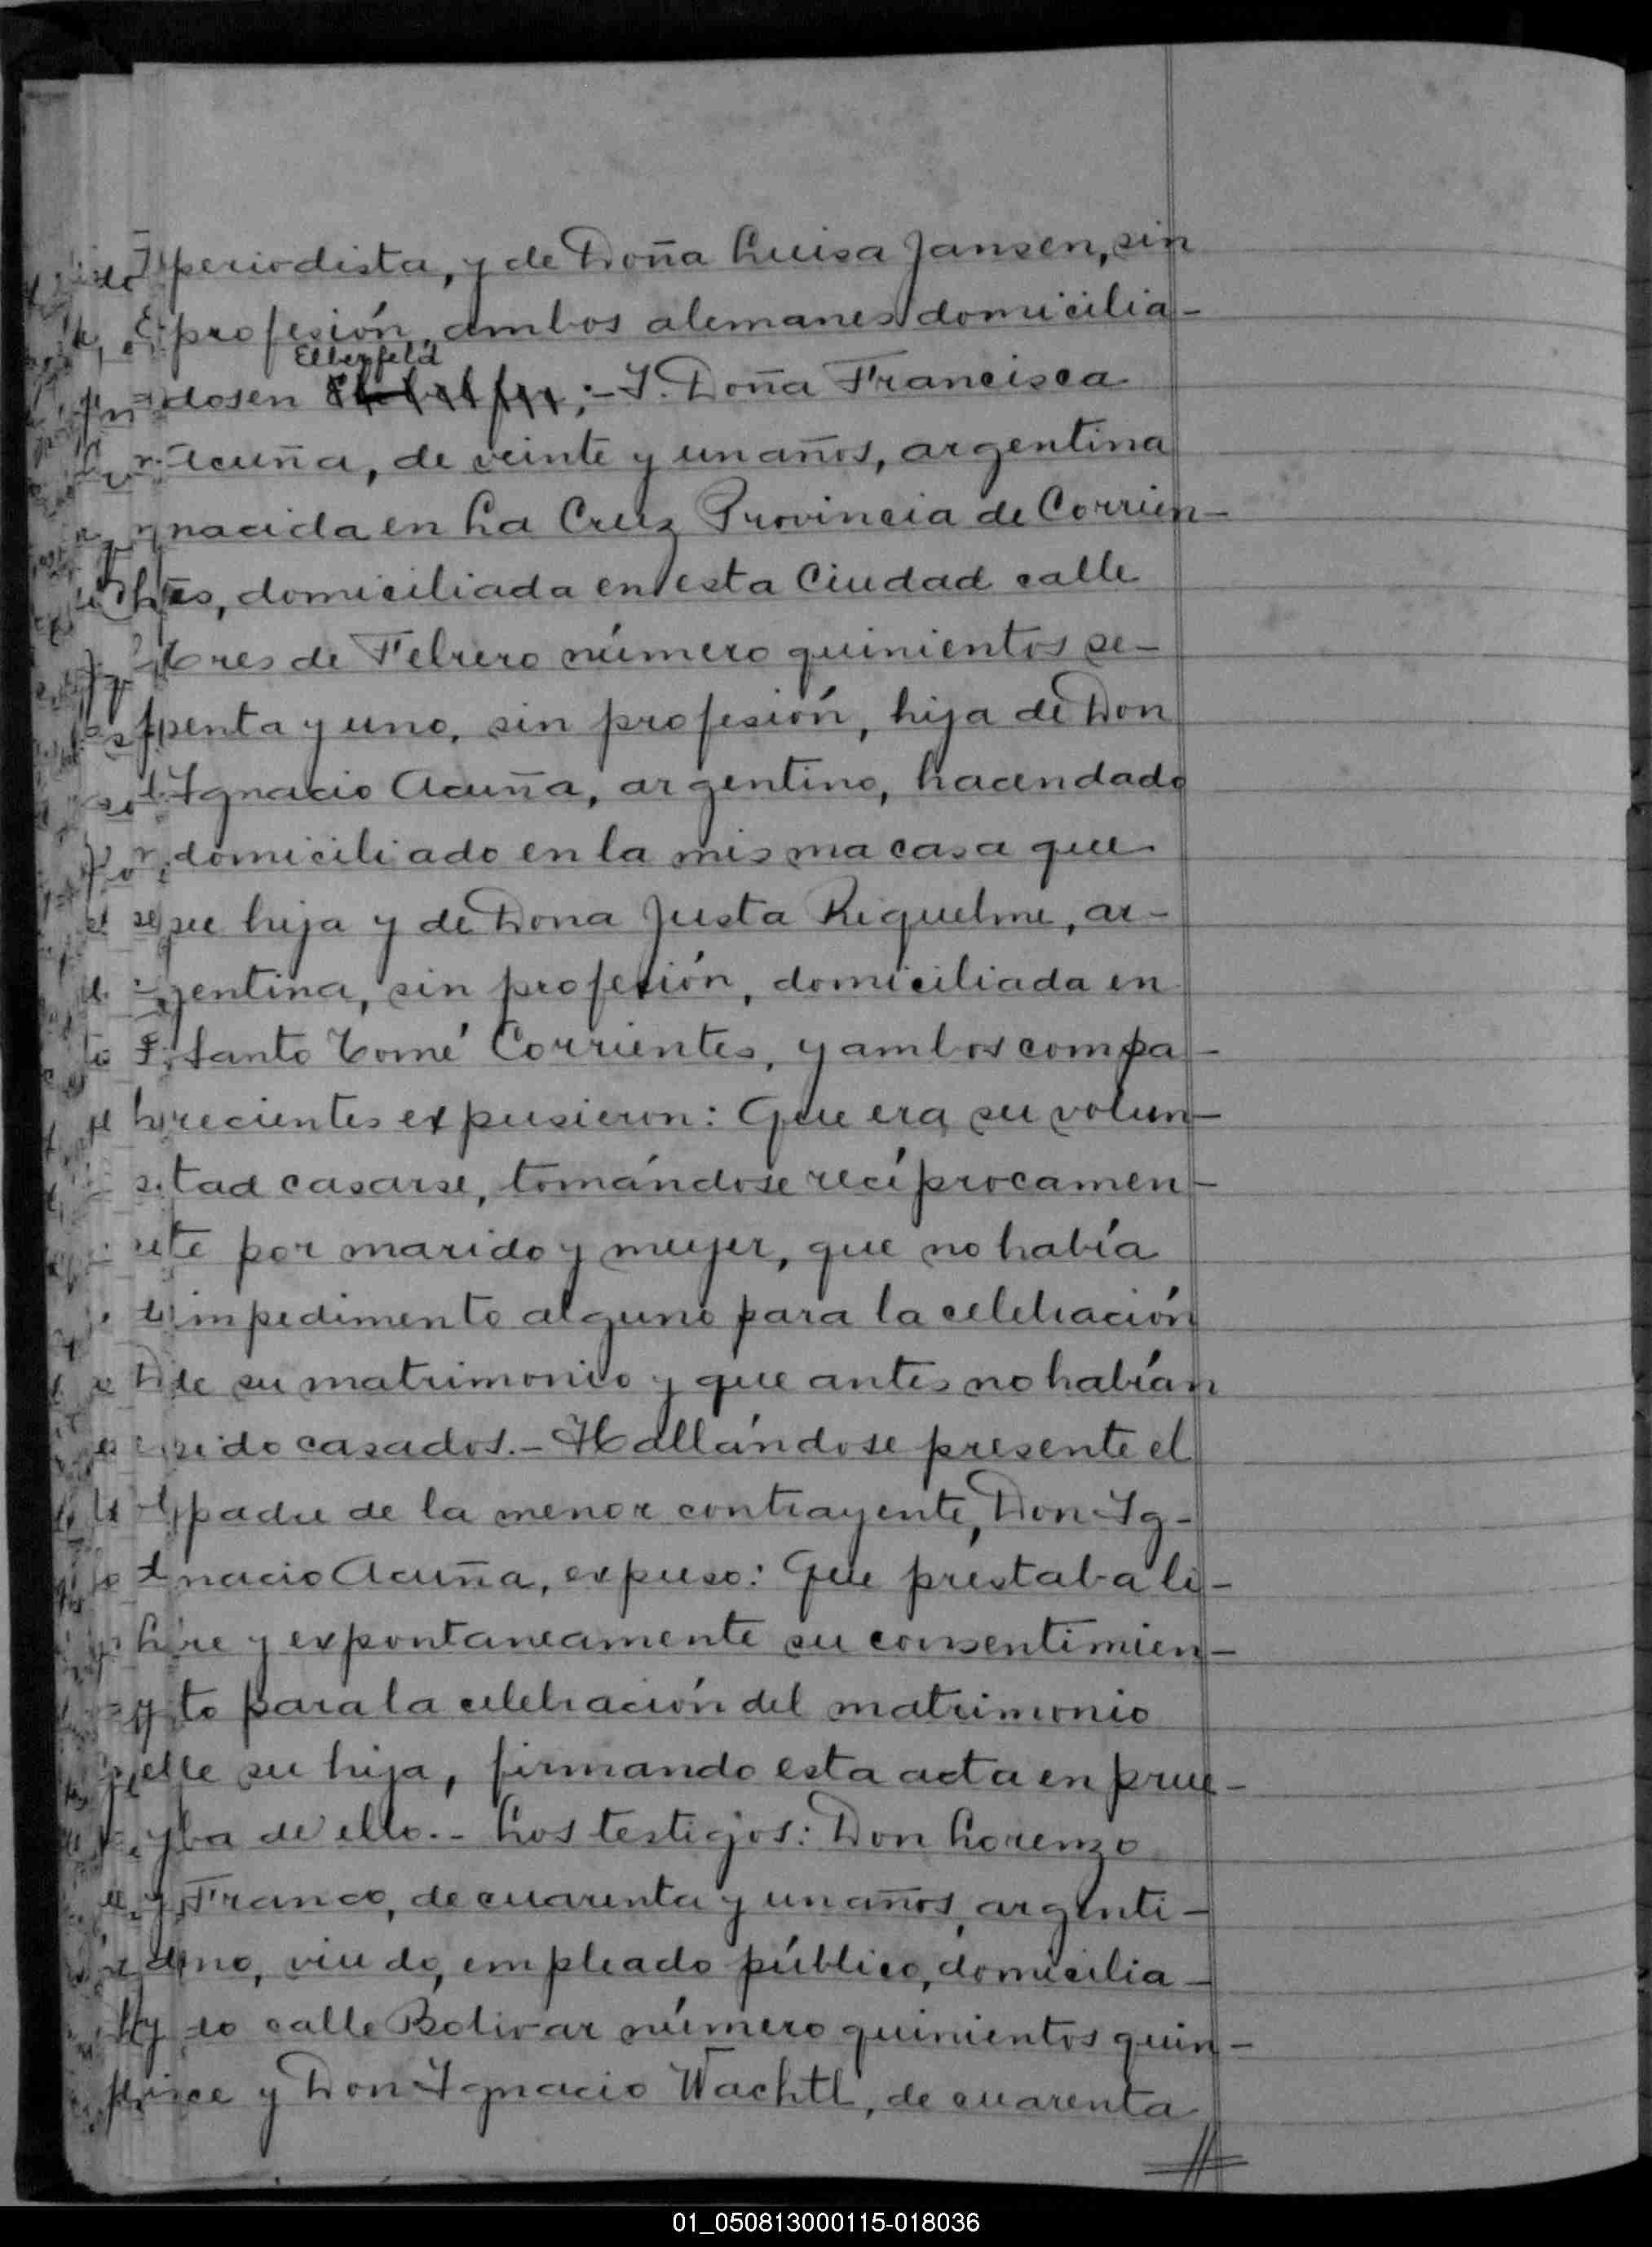 periodista, y de Doña Luisa Jansen, sin
profesión, ambos alemanes domicilia-
Elberfeld
dos en ;- Y. Doña Francisca
Acuña, de veinte y un años, argentina
nacida en La Cruz Provincia de Corrien-
tes, domiciliada en esta Ciudad calle
tres de Febrero número quinientos se-
senta y uno, sin profesión, hija de Don
Ignacio Acuña, argentino, hacendado
domiciliado en la misma casa que
su hija y de Dona Justa Riquelme, ar-
gentina, sin profesión, domiciliada en
Santo Tomé Corrientes, y ambos compa-
recientes expusieron: Que era su volun-
tad casarse, tomándose recíprocamen-
te por marido y mujer, que no había
impedimento alguno para la celebración
de su matrimonio y que antes no habían
sido casados.- Hallándose presente el
padre de la menor contrayente, Don Ig-
nacio Acuña, expuso: Que prestaba li-
bre y expontaneamente su consentimien-
to para la celebración del matrimonio
de su hija, firmando esta acta en prue-
ba de ello.- Los testigos: Don Lorenzo
Franco, de cuarenta y un años, argenti-
no, viudo, empleado público, domicilia-
do calle Bolivar número quinientos quin-
ce y Don Ignacio Wachtl, de cuarenta
01_050813000115-018036